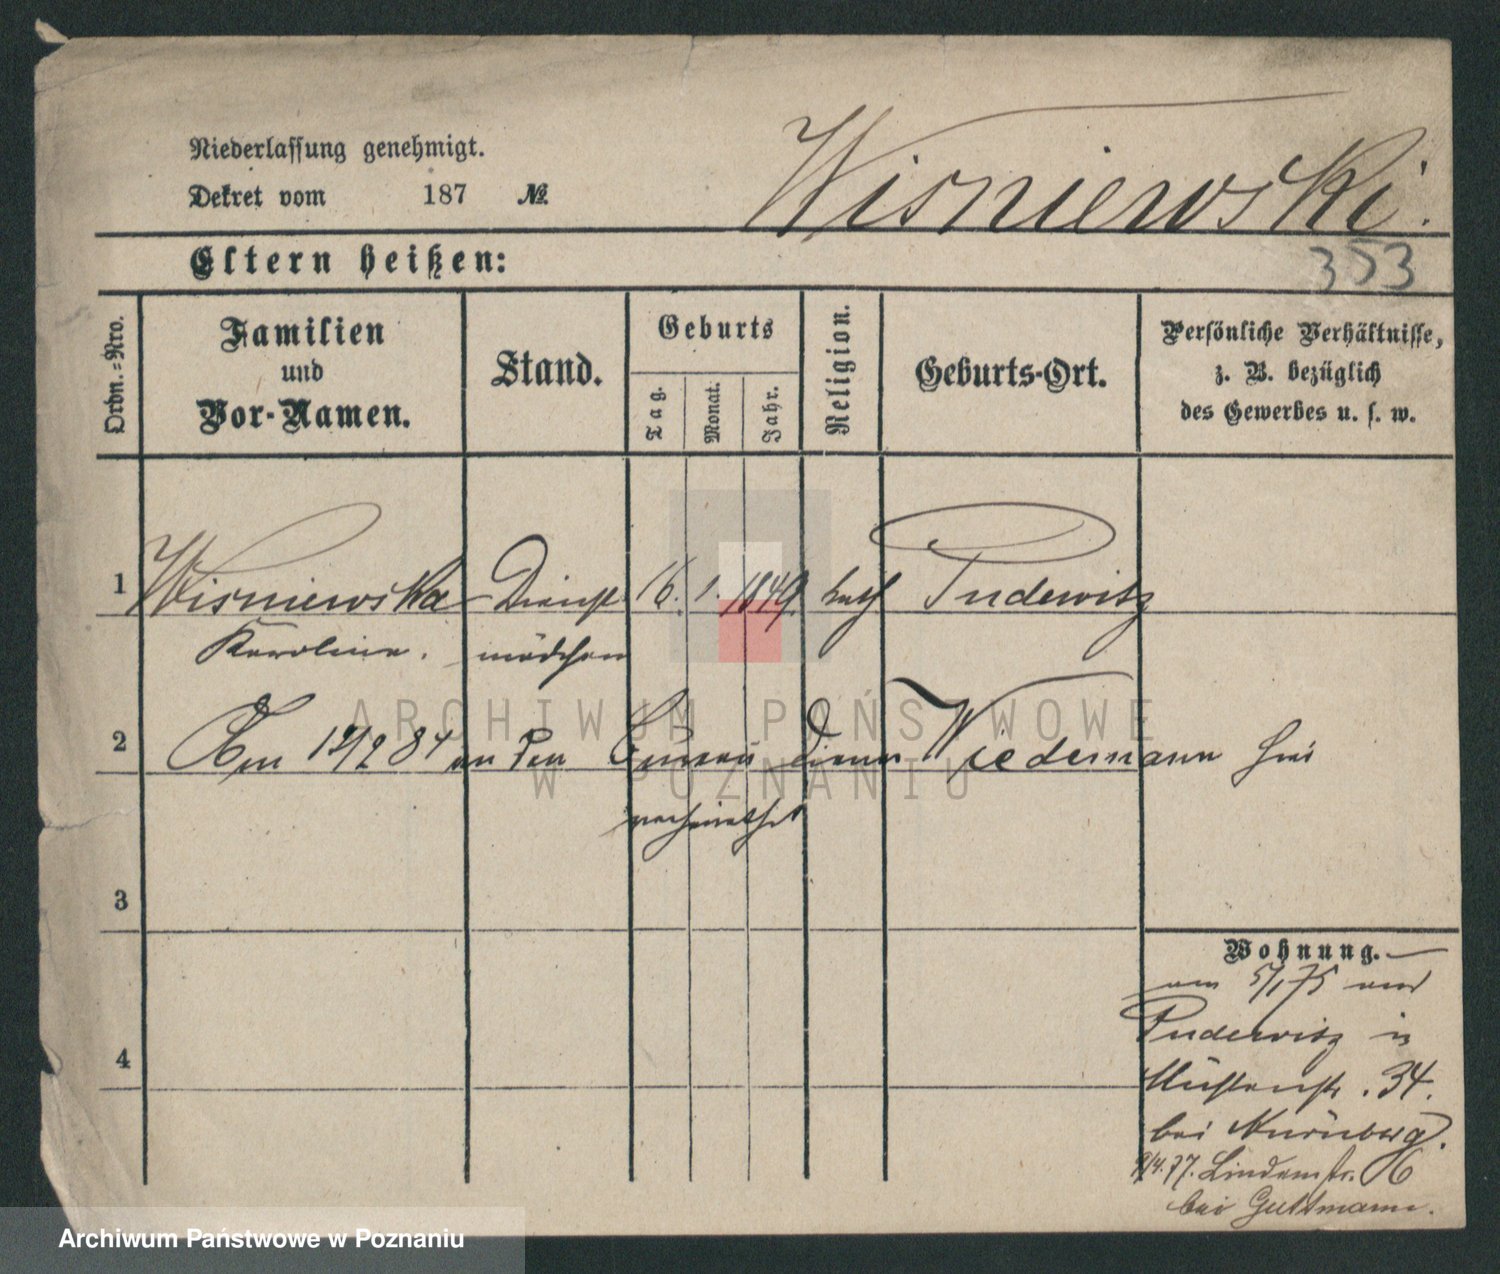 Niederlassung genehmigt.
Dekret vom 187 №
Wisniewski.
Eltern heißen:
353
Ordn.=Nro.
Familien
und
Vor-Namen.
Stand.
Geburts
Tag.
Monat.
Jahr.
Religion.
Geburts-Ort.
Persönliche Verhältnisse,
z. B. bezüglich
des Gewerbes u. s. w.
1 Wisniewska Dienst 16. 1. 1849 kath Pudewitz
Karolina. mädchen
2 Am 12/2 84 an den Bureau diener Wiedemann hier
verheirathet
3
4
Wohnung.
am 5/1 75 von
Pudewitz in
34.
bei Nürnberg.
9/4. 77. Lindenstr. 6
bei Guttmann.
ARCHIWUM PAŃSTWOWE
W POZNANIU
Archiwum Państwowe w Poznaniu